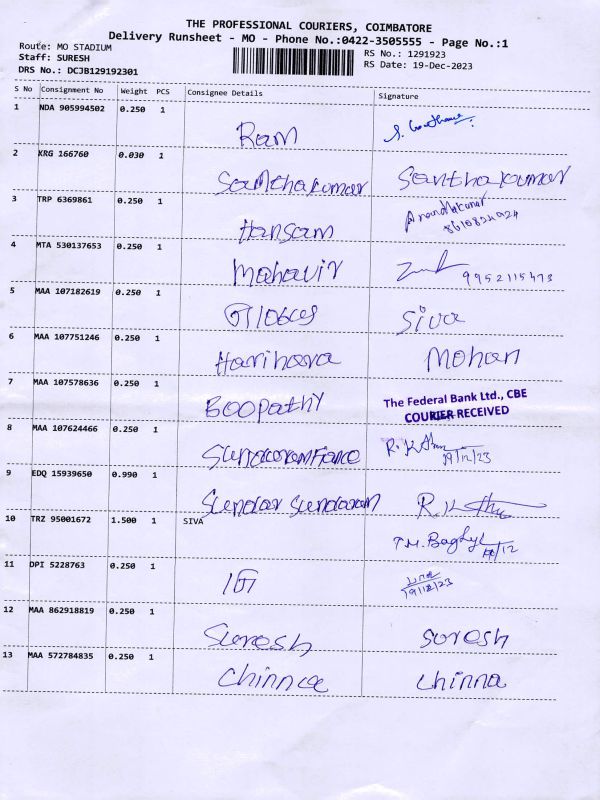 THE PROFESSIONAL COURIERS, COIMBATORE
Delivery Runsheet - MO - Phone No.:0422-3505555 - Page No.:1
Route: MO STADIUM
Staff: SURESH
DRS No.: DCJB129192301
RS No.: 1291923
RS Date: 19-Dec-2023
S No Consignment No Weight PCS Consignee Details Signature
1 NDA 905994502 0.250 1
Ram
2 KRG 166760 0.030 1
Santhakumar Santhakumar
3 TRP 6369861 0.250 1
Hansam Anandakumar
8610824924
4 MTA 530137653 0.250 1
Mahavir 9952115473
5 MAA 107182619 0.250 1
Siva
6 MAA 107751246 0.250 1
Harihara Mohan
7 MAA 107578636 0.250 1
Boopathy The Federal Bank Ltd., CBE
COURIER RECEIVED
8 MAA 107624466 0.250 1
19/12/23
9 EDQ 15939650 0.990 1
Sundar Sundaram
10 TRZ 95001672 1.500 1 SIVA
11 DPI 5228763 0.250 1
19/12/23
12 MAA 862918819 0.250 1
Suresh Suresh
13 MAA 572784835 0.250 1
Chinna Chinna